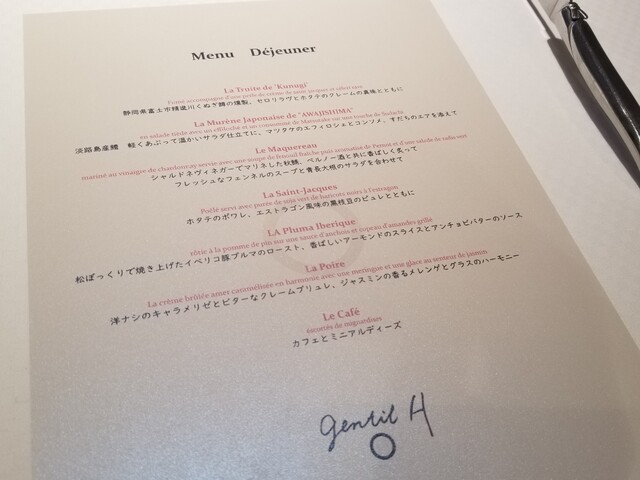 Menu Déjeuner
La Truite de 'Kunugi'
Fumé accompagné d'une perle de crème de saint jacques et céleri rave
静岡県富士市精進川くぬぎ鱒の燻製、セロリラヴとホタテのクレームの真珠とともに
La Murène Japonaise de "AWAJISHIMA"
en salade tiède avec un effiloché et un consommé de Matsutake ou une touche de Sudachi
淡路島産鱧 軽くあぶって温かいサラダ仕立てに、マツタケのエフィロシェとコンソメ、すだちのエアを添えて
Le Maquereau
mariné au vinaigre de chardonnay servie avec une soupe de fenouil fraîche puis de Pernot et d'une salade de radis vert
シャルドネヴィネガーでマリネした秋鯖、ペルノー酒と共に香ばしく炙って
フレッシュなフェンネルのスープと青長大根のサラダを合わせて
La Saint-Jacques
Poêlé servi avec purée de soja vert de haricots noirs à l'estragon
ホタテのポワレ、エストラゴン風味の黒枝豆のピュレとともに
LA Pluma Iberique
rôtis à la pomme de pin sur une sauce d'anchois et copeau d'amandes grillé
松ぼっくりで焼き上げたイベリコ豚プルマのロースト、香ばしいアーモンドのスライスとアンチョビバターのソース
La Poire
La crème brûlée amer caramélisée en harmonie avec une meringue et une glace au senteur de jasmin
洋ナシのキャラメリゼとビターなクレームブリュレ、ジャスミンの香るメレンゲとグラスのハーモニー
Le Café
escortés de mignardises
カフェとミニアルディーズ
gentil H